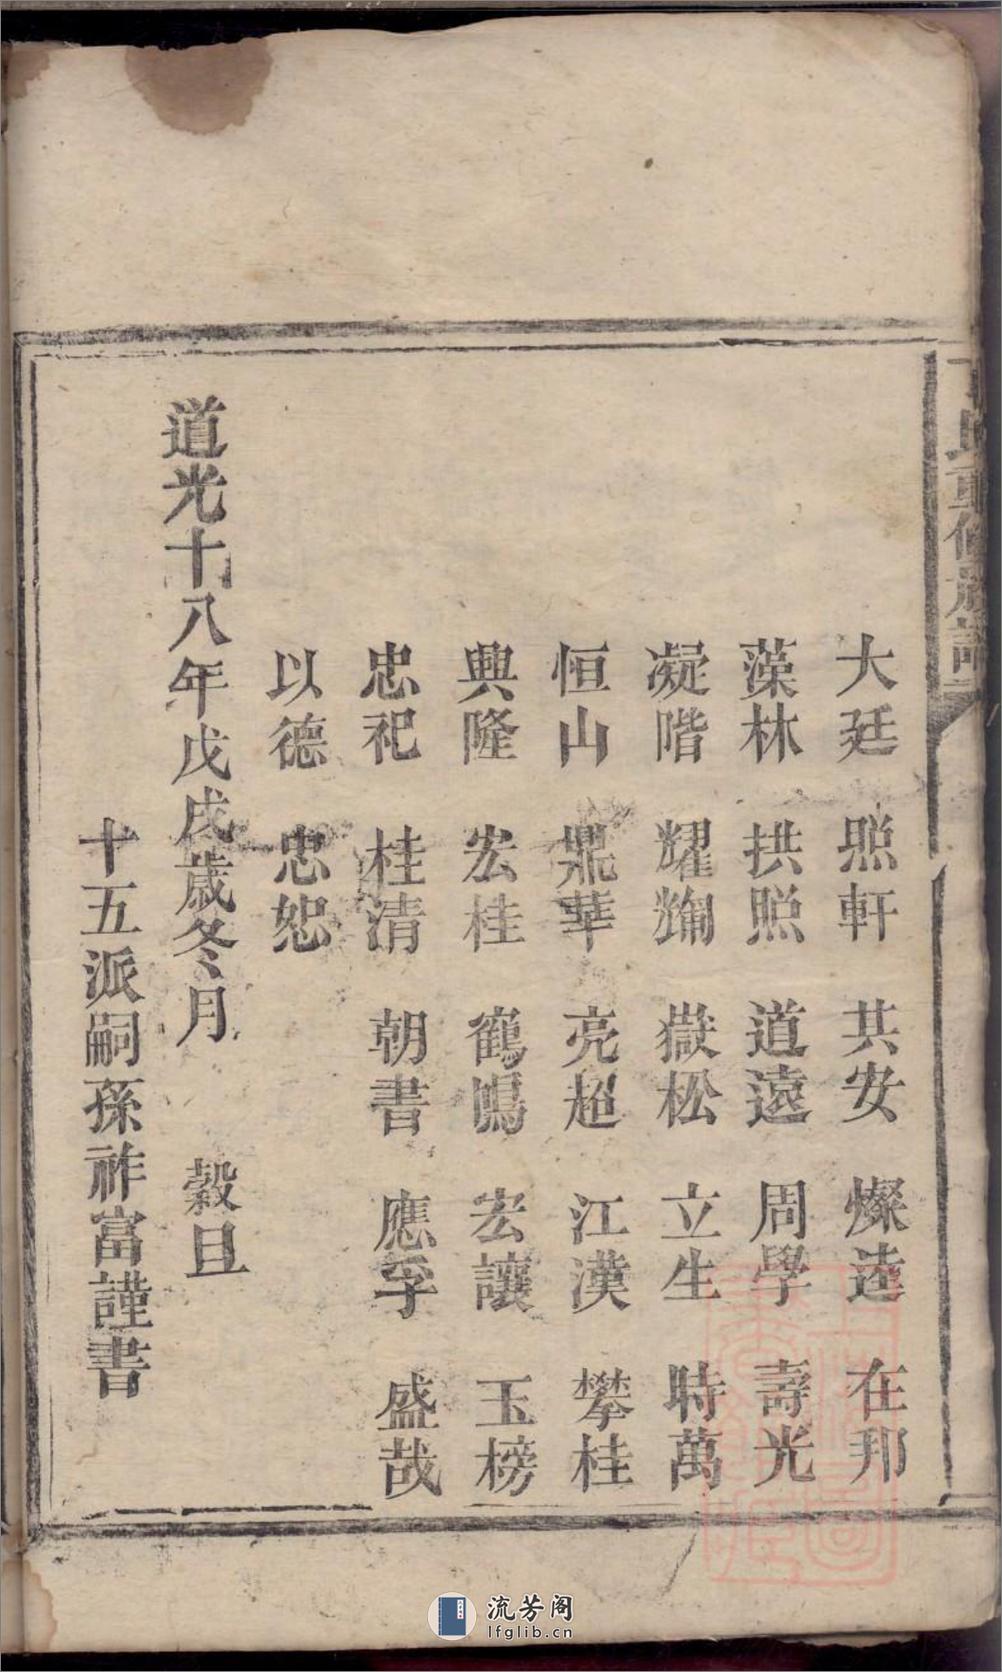 氏重修族譜
大廷 照軒 共安 燦逵 在邦
藻林 拱照 道遠 周學 壽光
凝階 耀㶷 嶽松 立生 時萬
恒山 鼎華 亮超 江漢 攀桂
興隆 宏桂 鶴鳴 宏讓 玉榜
忠祀 桂清 朝書 應孚 盛哉
以德 忠恕
道光十八年戊戌歲冬月 穀旦
十五派嗣孫祚富謹書
流芳阁
lfglib.cn